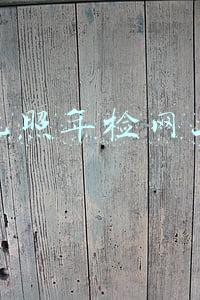 照年检网